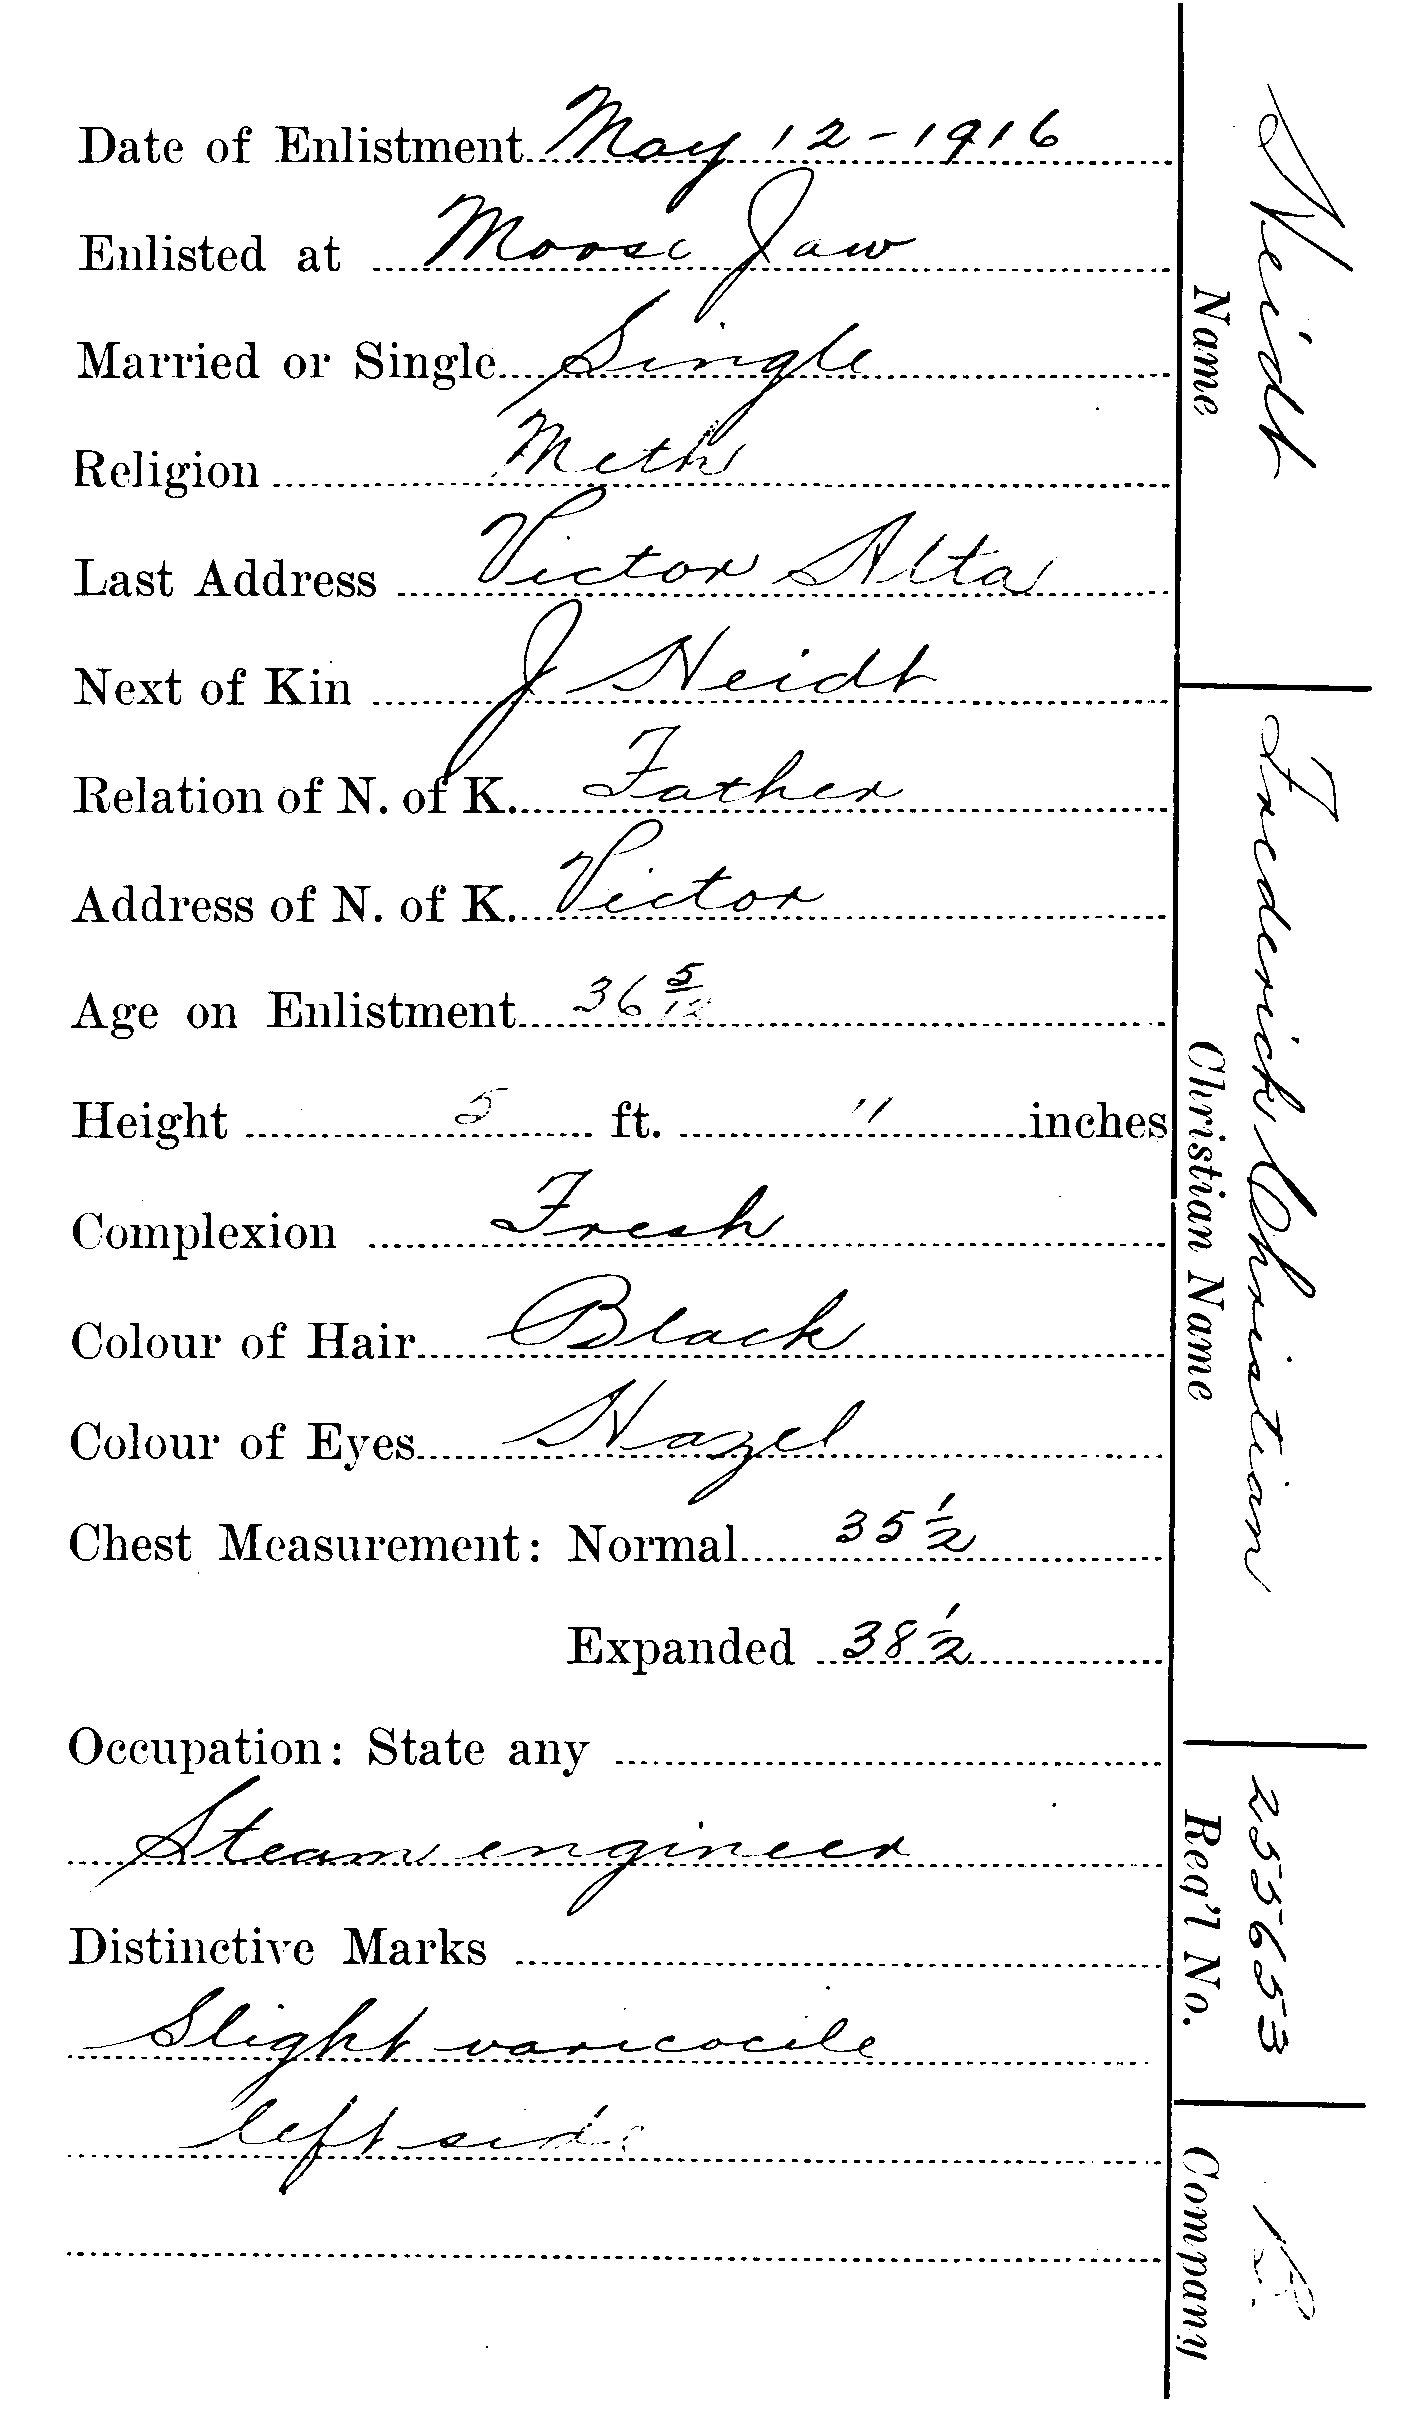 Date of Enlistment May 12-1916
Enlisted at Moose Jaw
Married or Single Single
Religion Meth
Last Address Victor Alta
Next of Kin J Heidt
Relation of N. of K. Father
Address of N. of K. Victor
Age on Enlistment 36 5/12
Height 5 ft. " inches
Complexion Fresh
Colour of Hair Black
Colour of Eyes Hazel
Chest Measurement: Normal 35 1/2
Expanded 38 1/2
Occupation: State any
Steam engineer
Distinctive Marks
Slight varicocile
left side
Heidt
Name
Frederick Christian
Christian Name
255653
Reg'l No.
Company